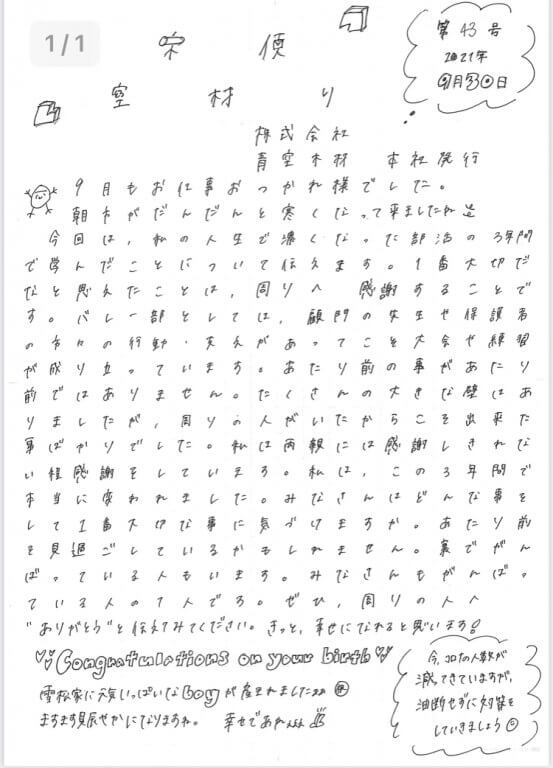 1/1
第43号
2021年
9月30日
宋便
空材り
株式会社
青空木材 本社発行
9月もお仕事おつかれ様でした。
朝方がだんだんと寒くなって来ましたね
今回は、私の人生で濃くなった部活の3年間
で学んだことについて伝えます。1番大切だ
なと思えたことは、周りへ感謝することで
す。バレー部としては、顧問の先生や保護者
の方々の行動・支えがあってこそ大会や練習
が成り立っています。あたり前の事があたり
前ではありません。たくさんの大きな壁はあ
りましたが、周りの人がいたからこそ出来た
事ばかりでした。私は両親には感謝しきれな
い程感謝をしています。私は、この3年間で
本当に変われました。みなさんはどんな事を
して1番大切な事に気づけますか。あたり前
を見過ごしているかもしれません。裏でがん
ばっている人もいます。みなさんもがんばっ
ている人の1人です。ぜひ、周りの人へ
"ありがとう"と伝えてみてください。きっと、幸せになれると思います!
Congratulations on your birth
雪松家に元気いっぱいなboyが産まれました
ますます賑やかになりますね。 幸せであれ
今、コロナの人数が
減ってきていますが、
油断せずに対策を
していきましょう